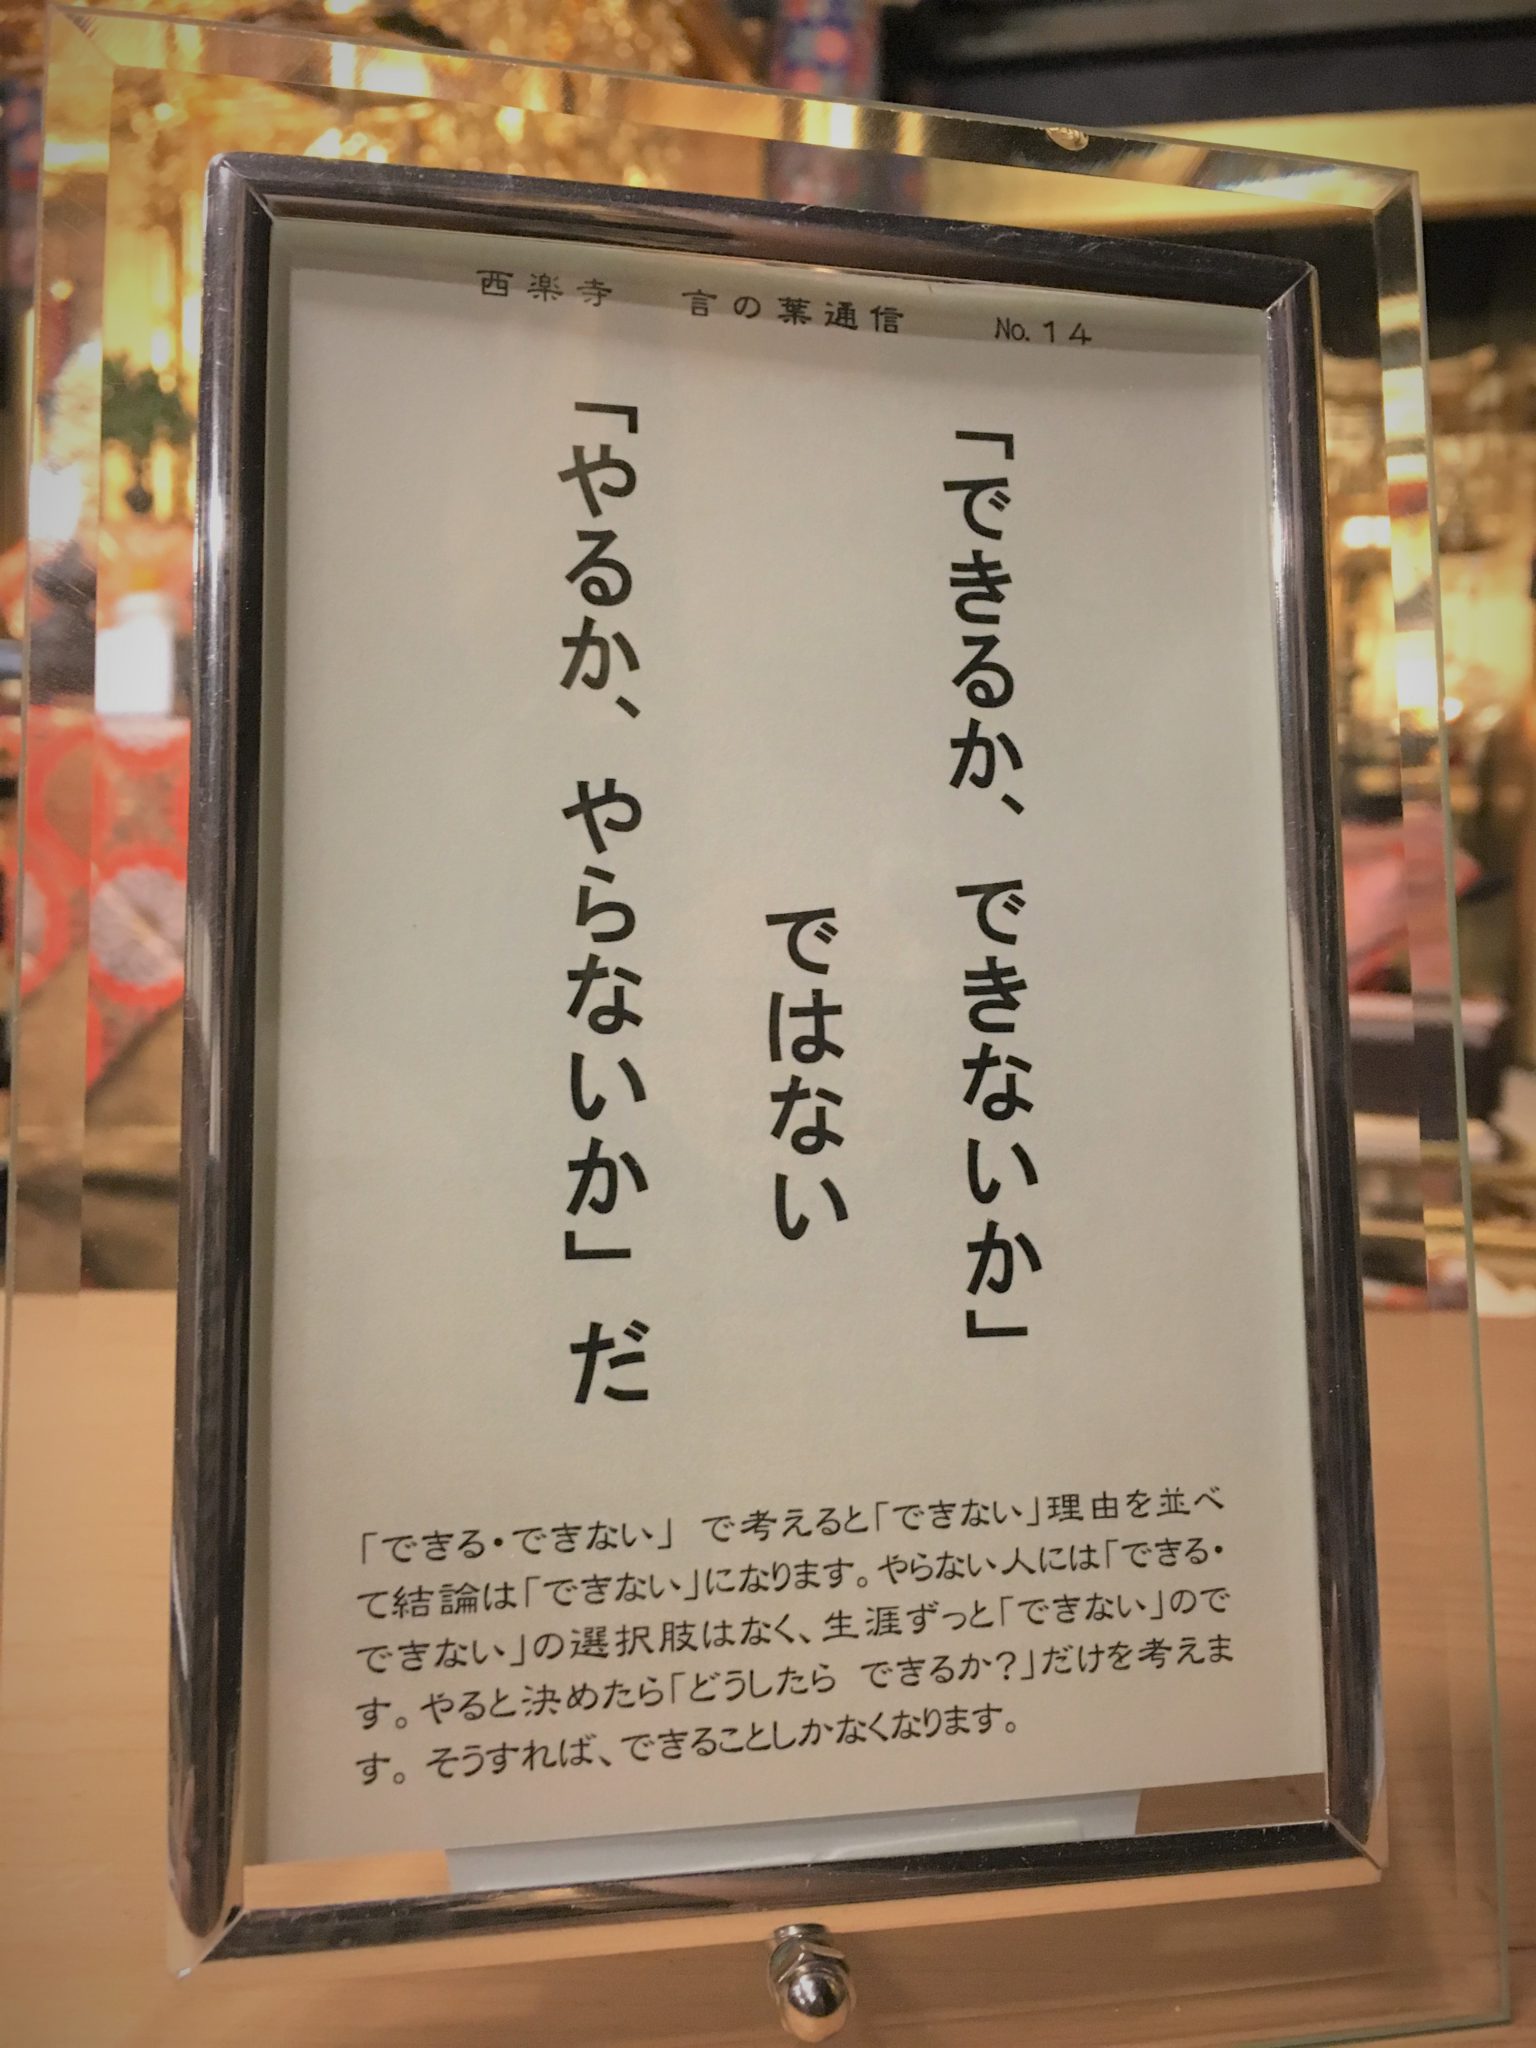 西楽寺　言の葉通信　No.14
「できるか、できないか」
ではない
「やるか、やらないか」だ
「できる・できない」 で考えると「できない」理由を並べ
て結論は「できない」になります。やらない人には「できる・
できない」の選択肢はなく、生涯ずっと「できない」ので
す。やると決めたら「どうしたら できるか？」だけを考えま
す。そうすれば、できることしかなくなります。